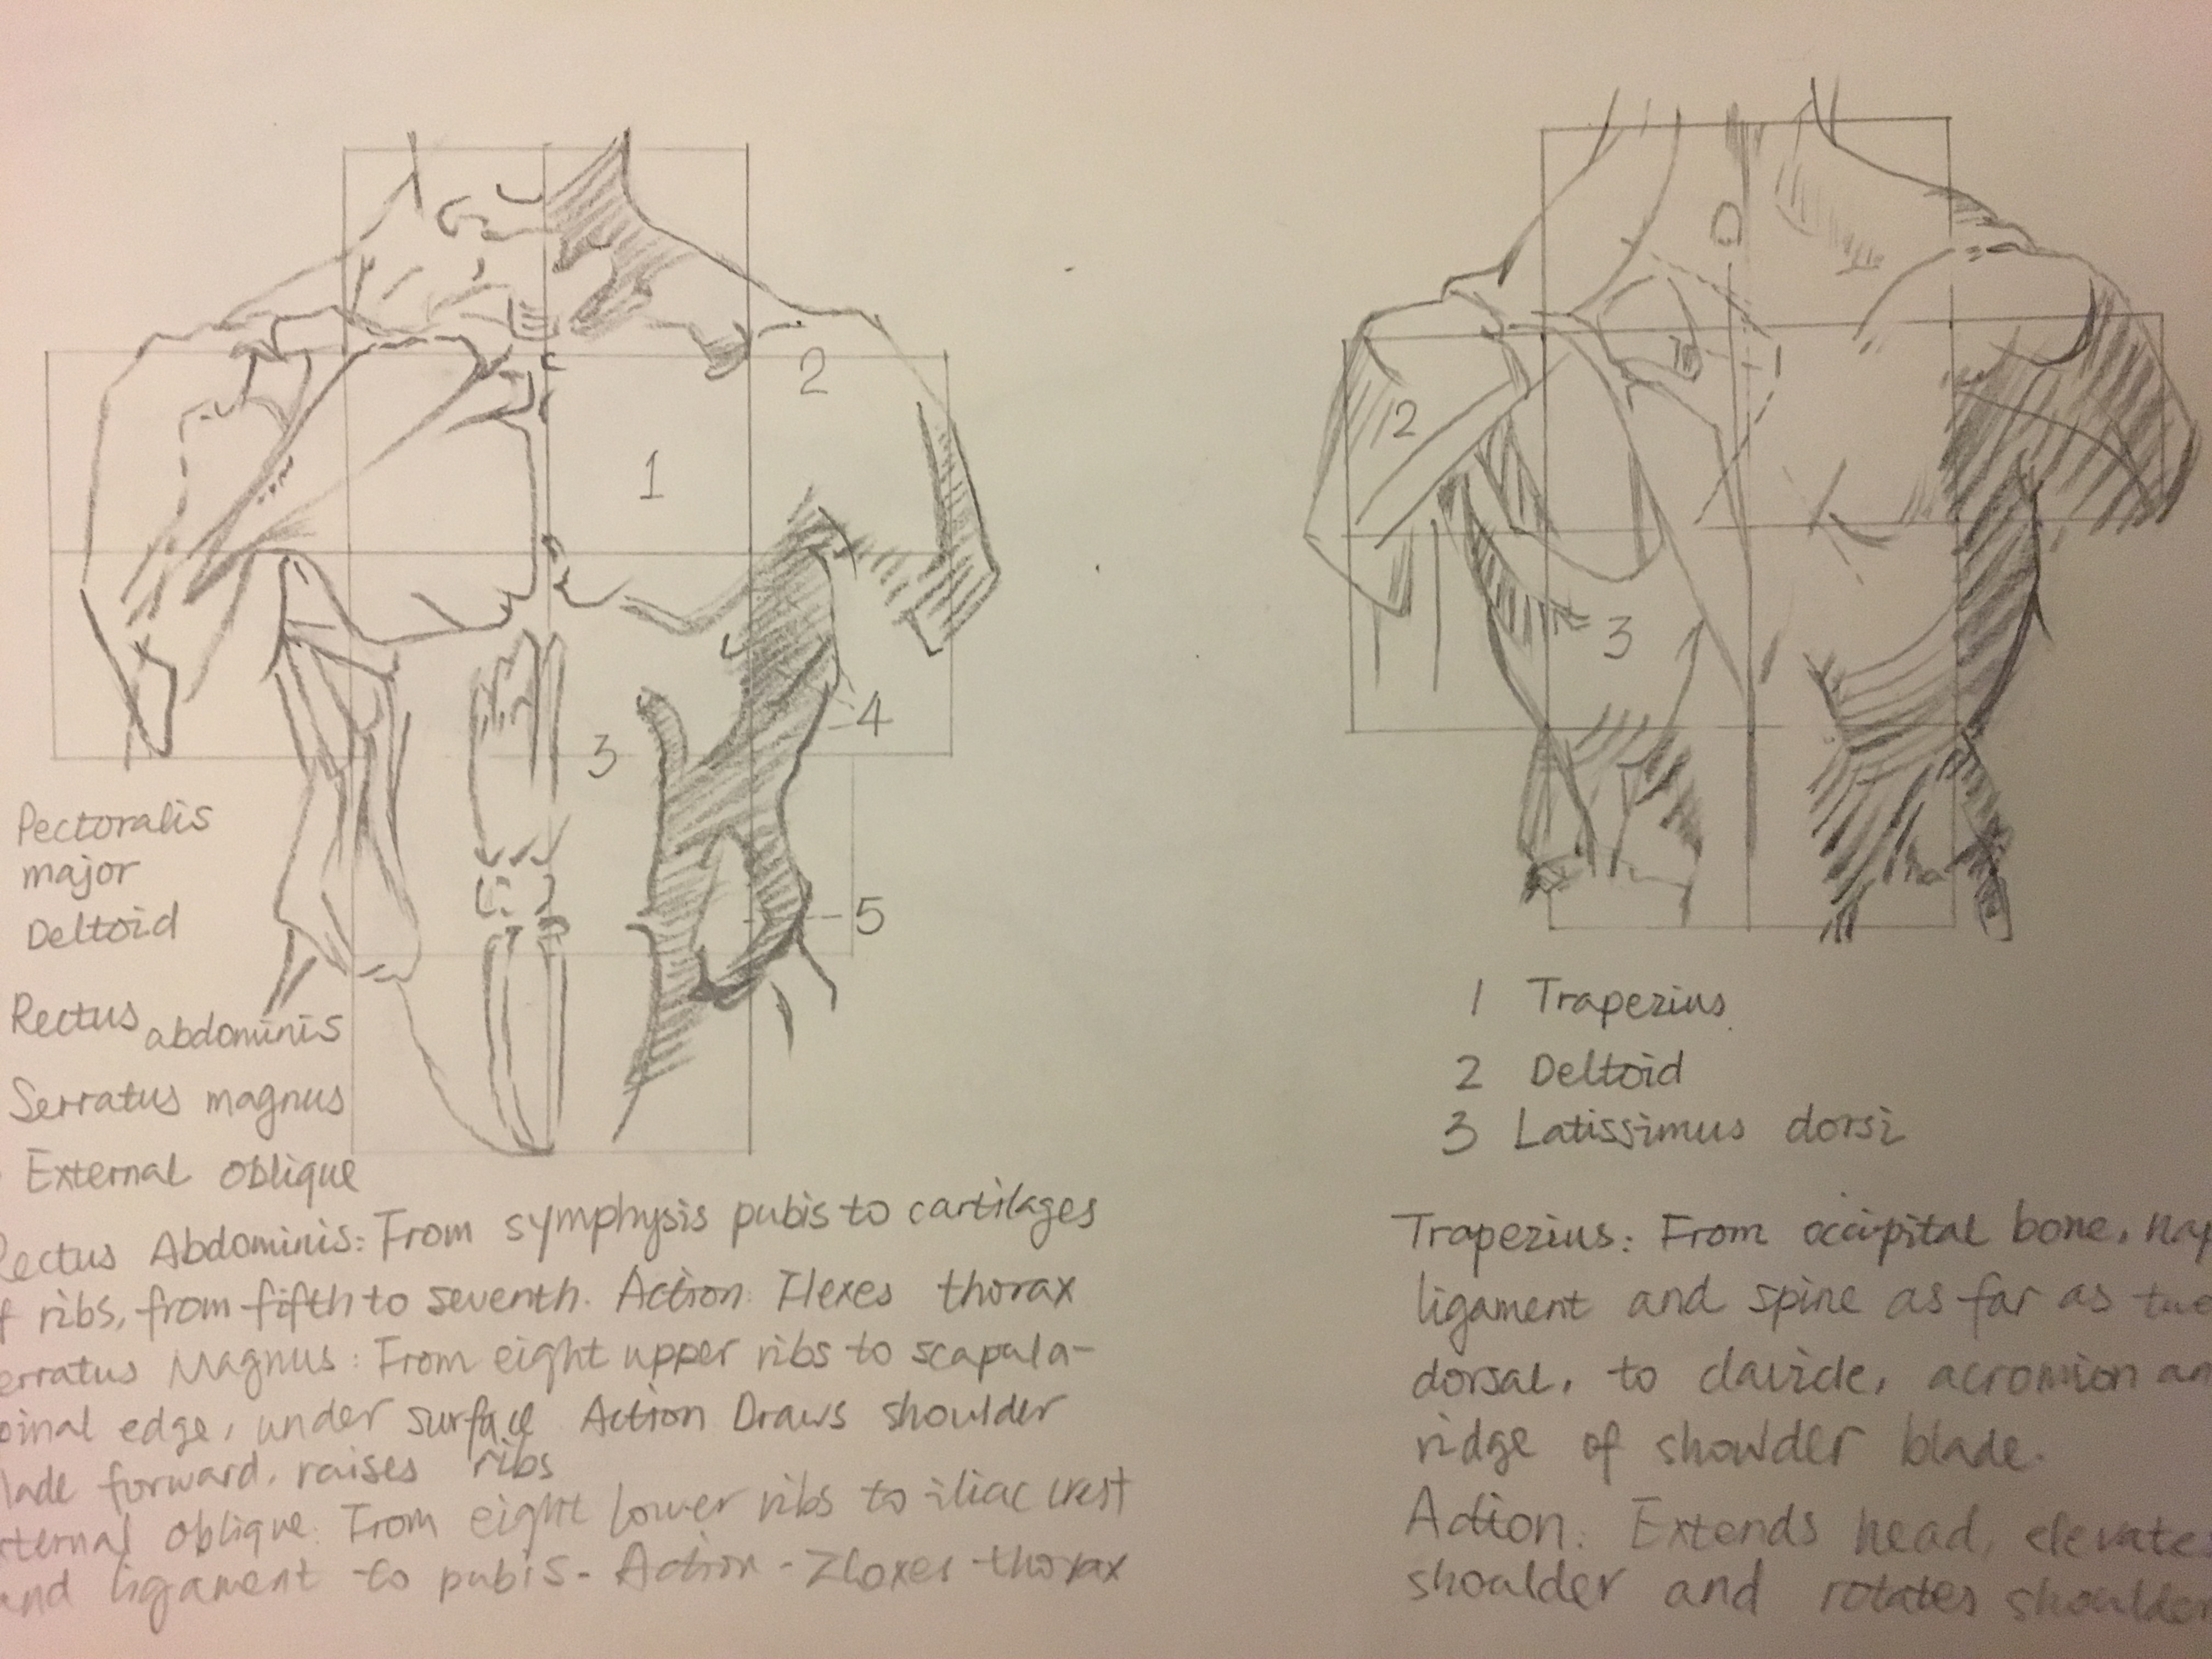 2
1
4
3
5
Pectoralis
major
Deltoid
Rectus abdominis
Serratus magnus
External oblique
Rectus Abdominis: From symphysis pubis to cartilages
f ribs, from fifth to seventh. Action: Flexes thorax
erratus Magnus: From eight upper ribs to scapula-
pinal edge, under surface Action Draws shoulder
lade forward, raises ribs
xternal oblique: From eight lower ribs to iliac crest
and ligament to pubis - Action - Flexes thorax
2
3
1 Trapezius
2 Deltoid
3 Latissimus dorsi
Trapezius: From occipital bone, nap
ligament and spine as far as twe
dorsal, to clavicle, acromion an
ridge of shoulder blade.
Action: Extends head, elevates
shoulder and rotates shoulder